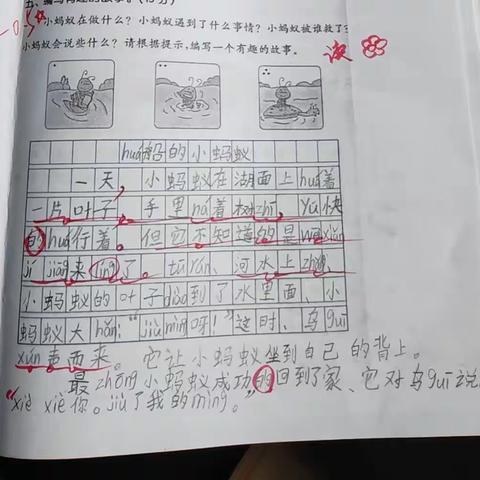 小蚂蚁在做什么？小蚂蚁遇到了什么事情？小蚂蚁被谁救了？
小蚂蚁会说些什么？请根据提示，编写一个有趣的故事。
huá船的小蚂蚁
一天，小蚂蚁在湖面上huá着
一片叶子，手里ná着树zhī，yú快
的huá行着。但它不知道的是wēi xiǎn
jí jiāng来lín了。tū rán，河水上zhǎng，
小蚂蚁的叶子dào到了水里面、小
蚂蚁大hǎn：“jiù mìng呀！”这时、乌guī
xún声而来。它让小蚂蚁坐到自己的背上。
最zhōng小蚂蚁成功的回到了家、它对乌guī说
“xiè xiè你。jiù了我的mìng。”